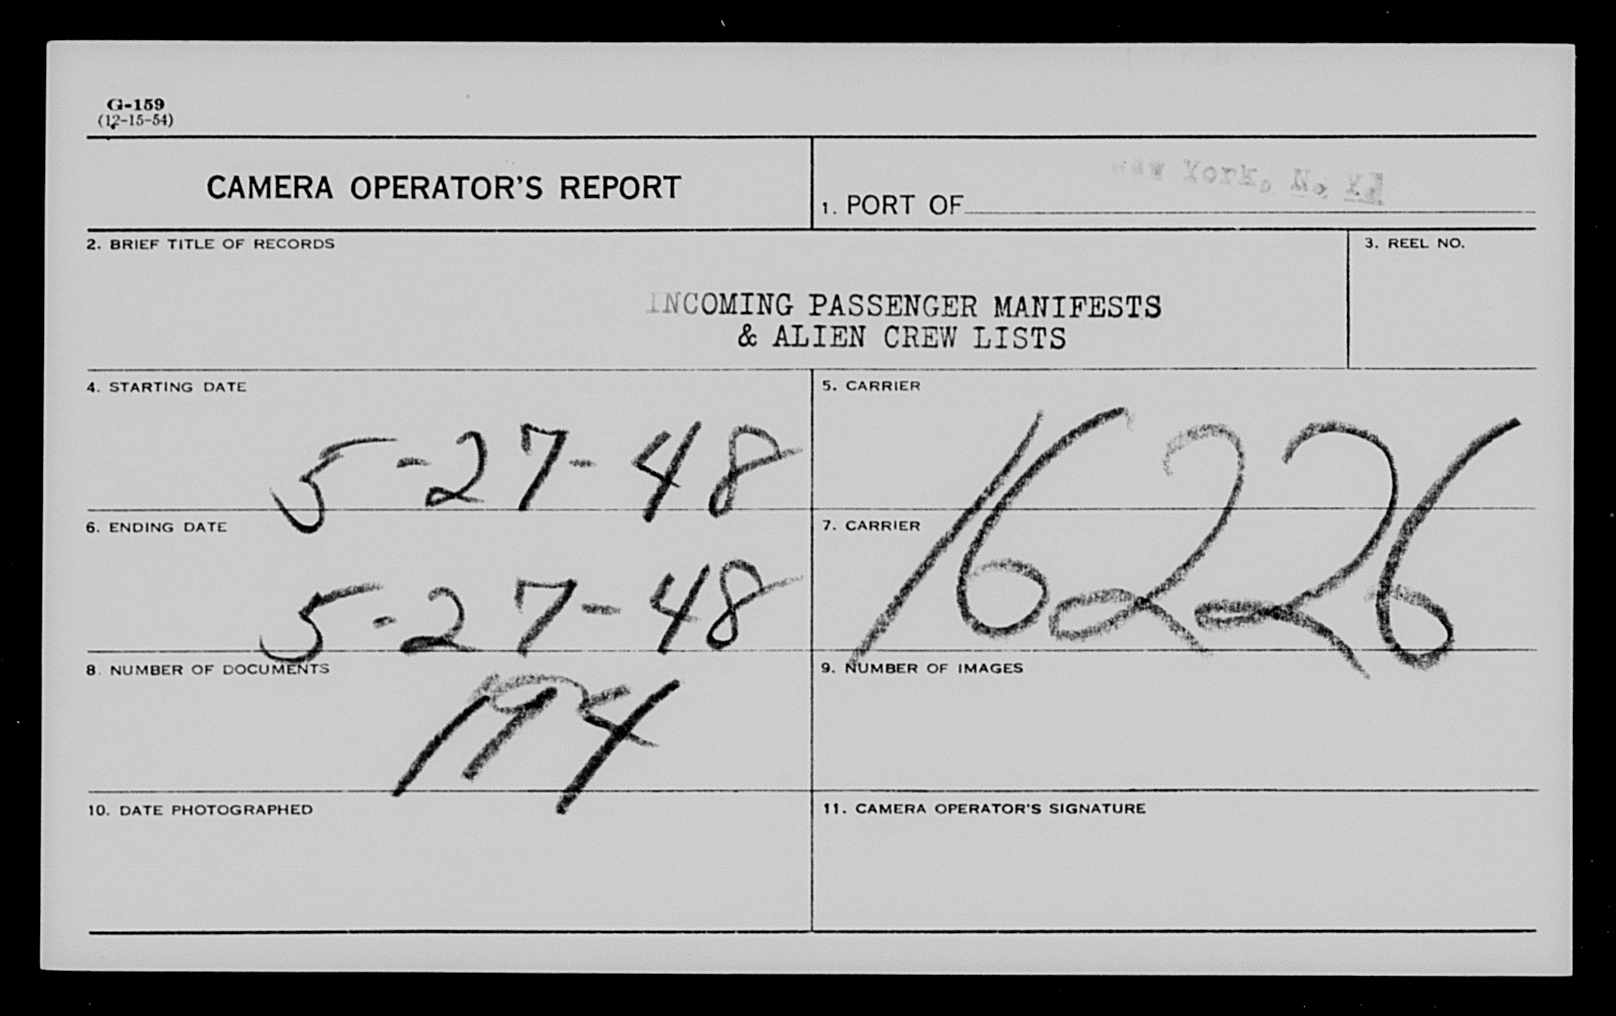 G-159
(12-15-54)
CAMERA OPERATOR'S REPORT
1. PORT OF New York, N. Y.
2. BRIEF TITLE OF RECORDS
3. REEL NO.
INCOMING PASSENGER MANIFESTS
& ALIEN CREW LISTS
4. STARTING DATE
5-27-48
5. CARRIER
16226
6. ENDING DATE
5-27-48
7. CARRIER
8. NUMBER OF DOCUMENTS
194
9. NUMBER OF IMAGES
10. DATE PHOTOGRAPHED
11. CAMERA OPERATOR'S SIGNATURE